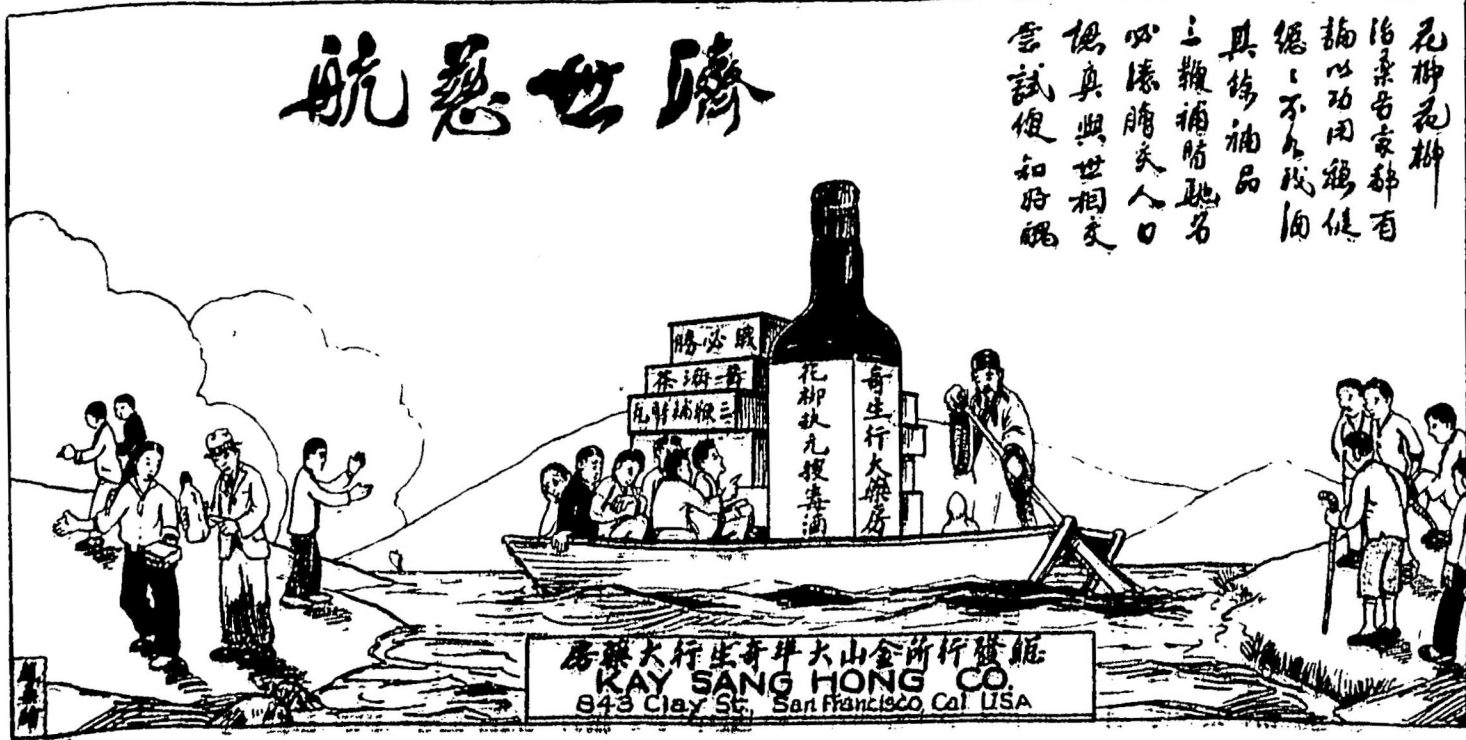 濟世慈航
花柳花柳
治藥各家都有
論以功用穩健
總〻不及我酒
其餘補品
三鞭補腎馳名
必勝膾炙人口
認真與世相交
嘗試便知好醜
戰必勝
三鞭補腎丸
奇生行大藥房
花柳扶元搜毒酒
總發行所金山大埠奇生行大藥房
KAY SANG HONG CO.
843 Clay St. San Francisco, Cal. USA